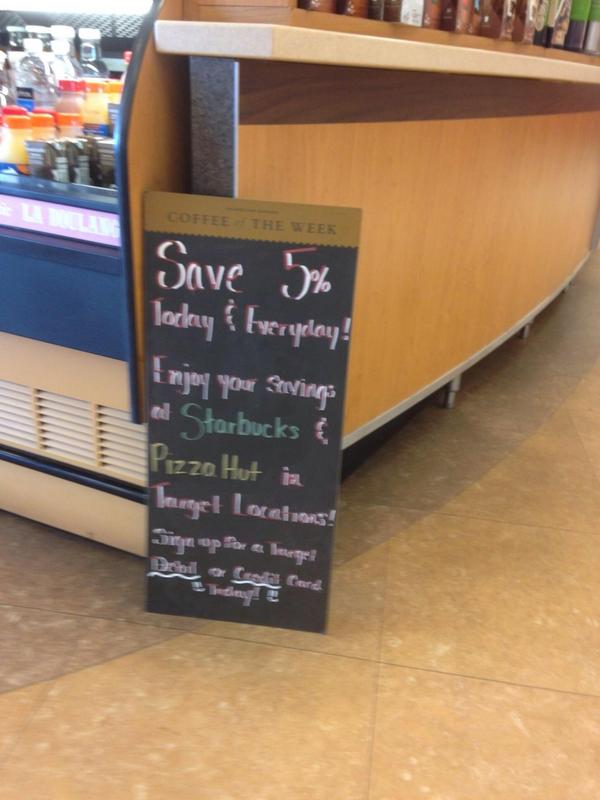 LA BOULANG
COFFEE of THE WEEK
Save 5%
Today & Everyday!
Enjoy your savings
at Starbucks &
Pizza Hut in
Target Locations!
Sign up for a Target
Debit or Credit Card
!! Today! !!